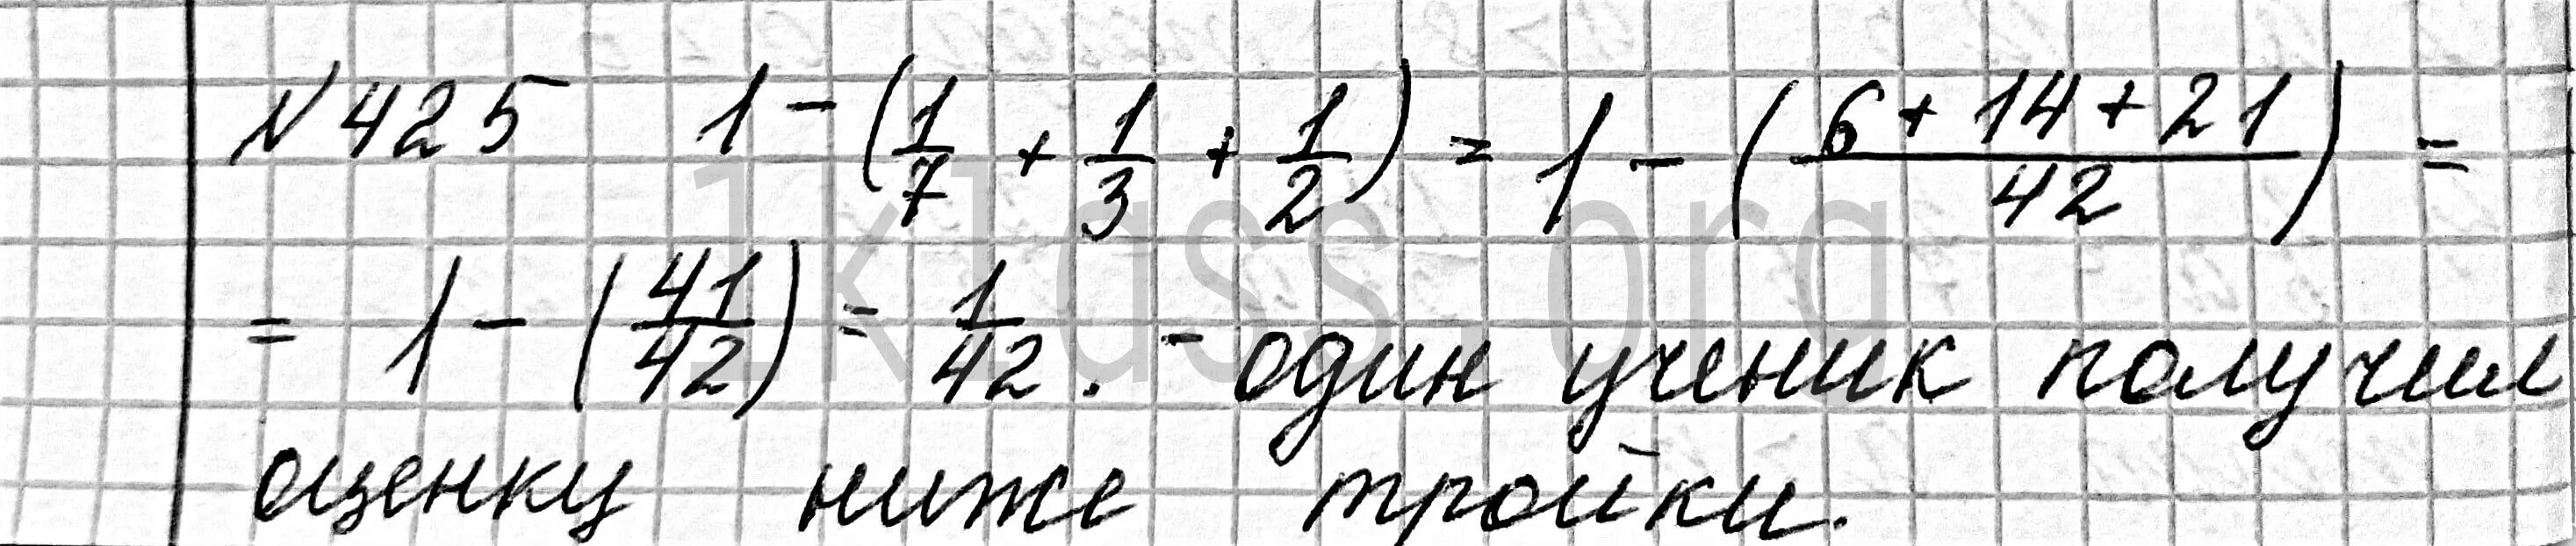 №425 1 - (1/7 + 1/3 + 1/2) = 1 - (6 + 14 + 21/42) =
= 1 - (41/42) = 1/42. - один ученик получил
оценку ниже тройки.
1klass.org